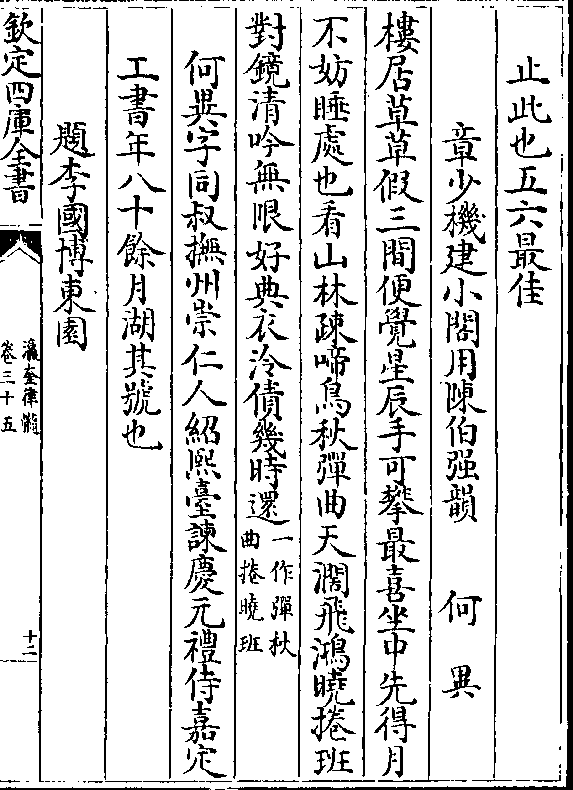 止此也五六最佳
章少機建小閣用陳伯强韻　何異
樓居草草假三間便覺星辰手可攀最喜坐中先得月
不妨睡處也看山林疎啼鳥秋彈曲天濶飛鴻曉捲班
對鏡清吟無限好典衣冷債幾時還一作彈秋曲捲曉班
何異字同叔撫州崇仁人紹熙臺諫慶元禮侍嘉定
工書年八十餘月湖其號也
題李國博東園
欽定四庫全書
瀛奎律髓
卷三十五
十二